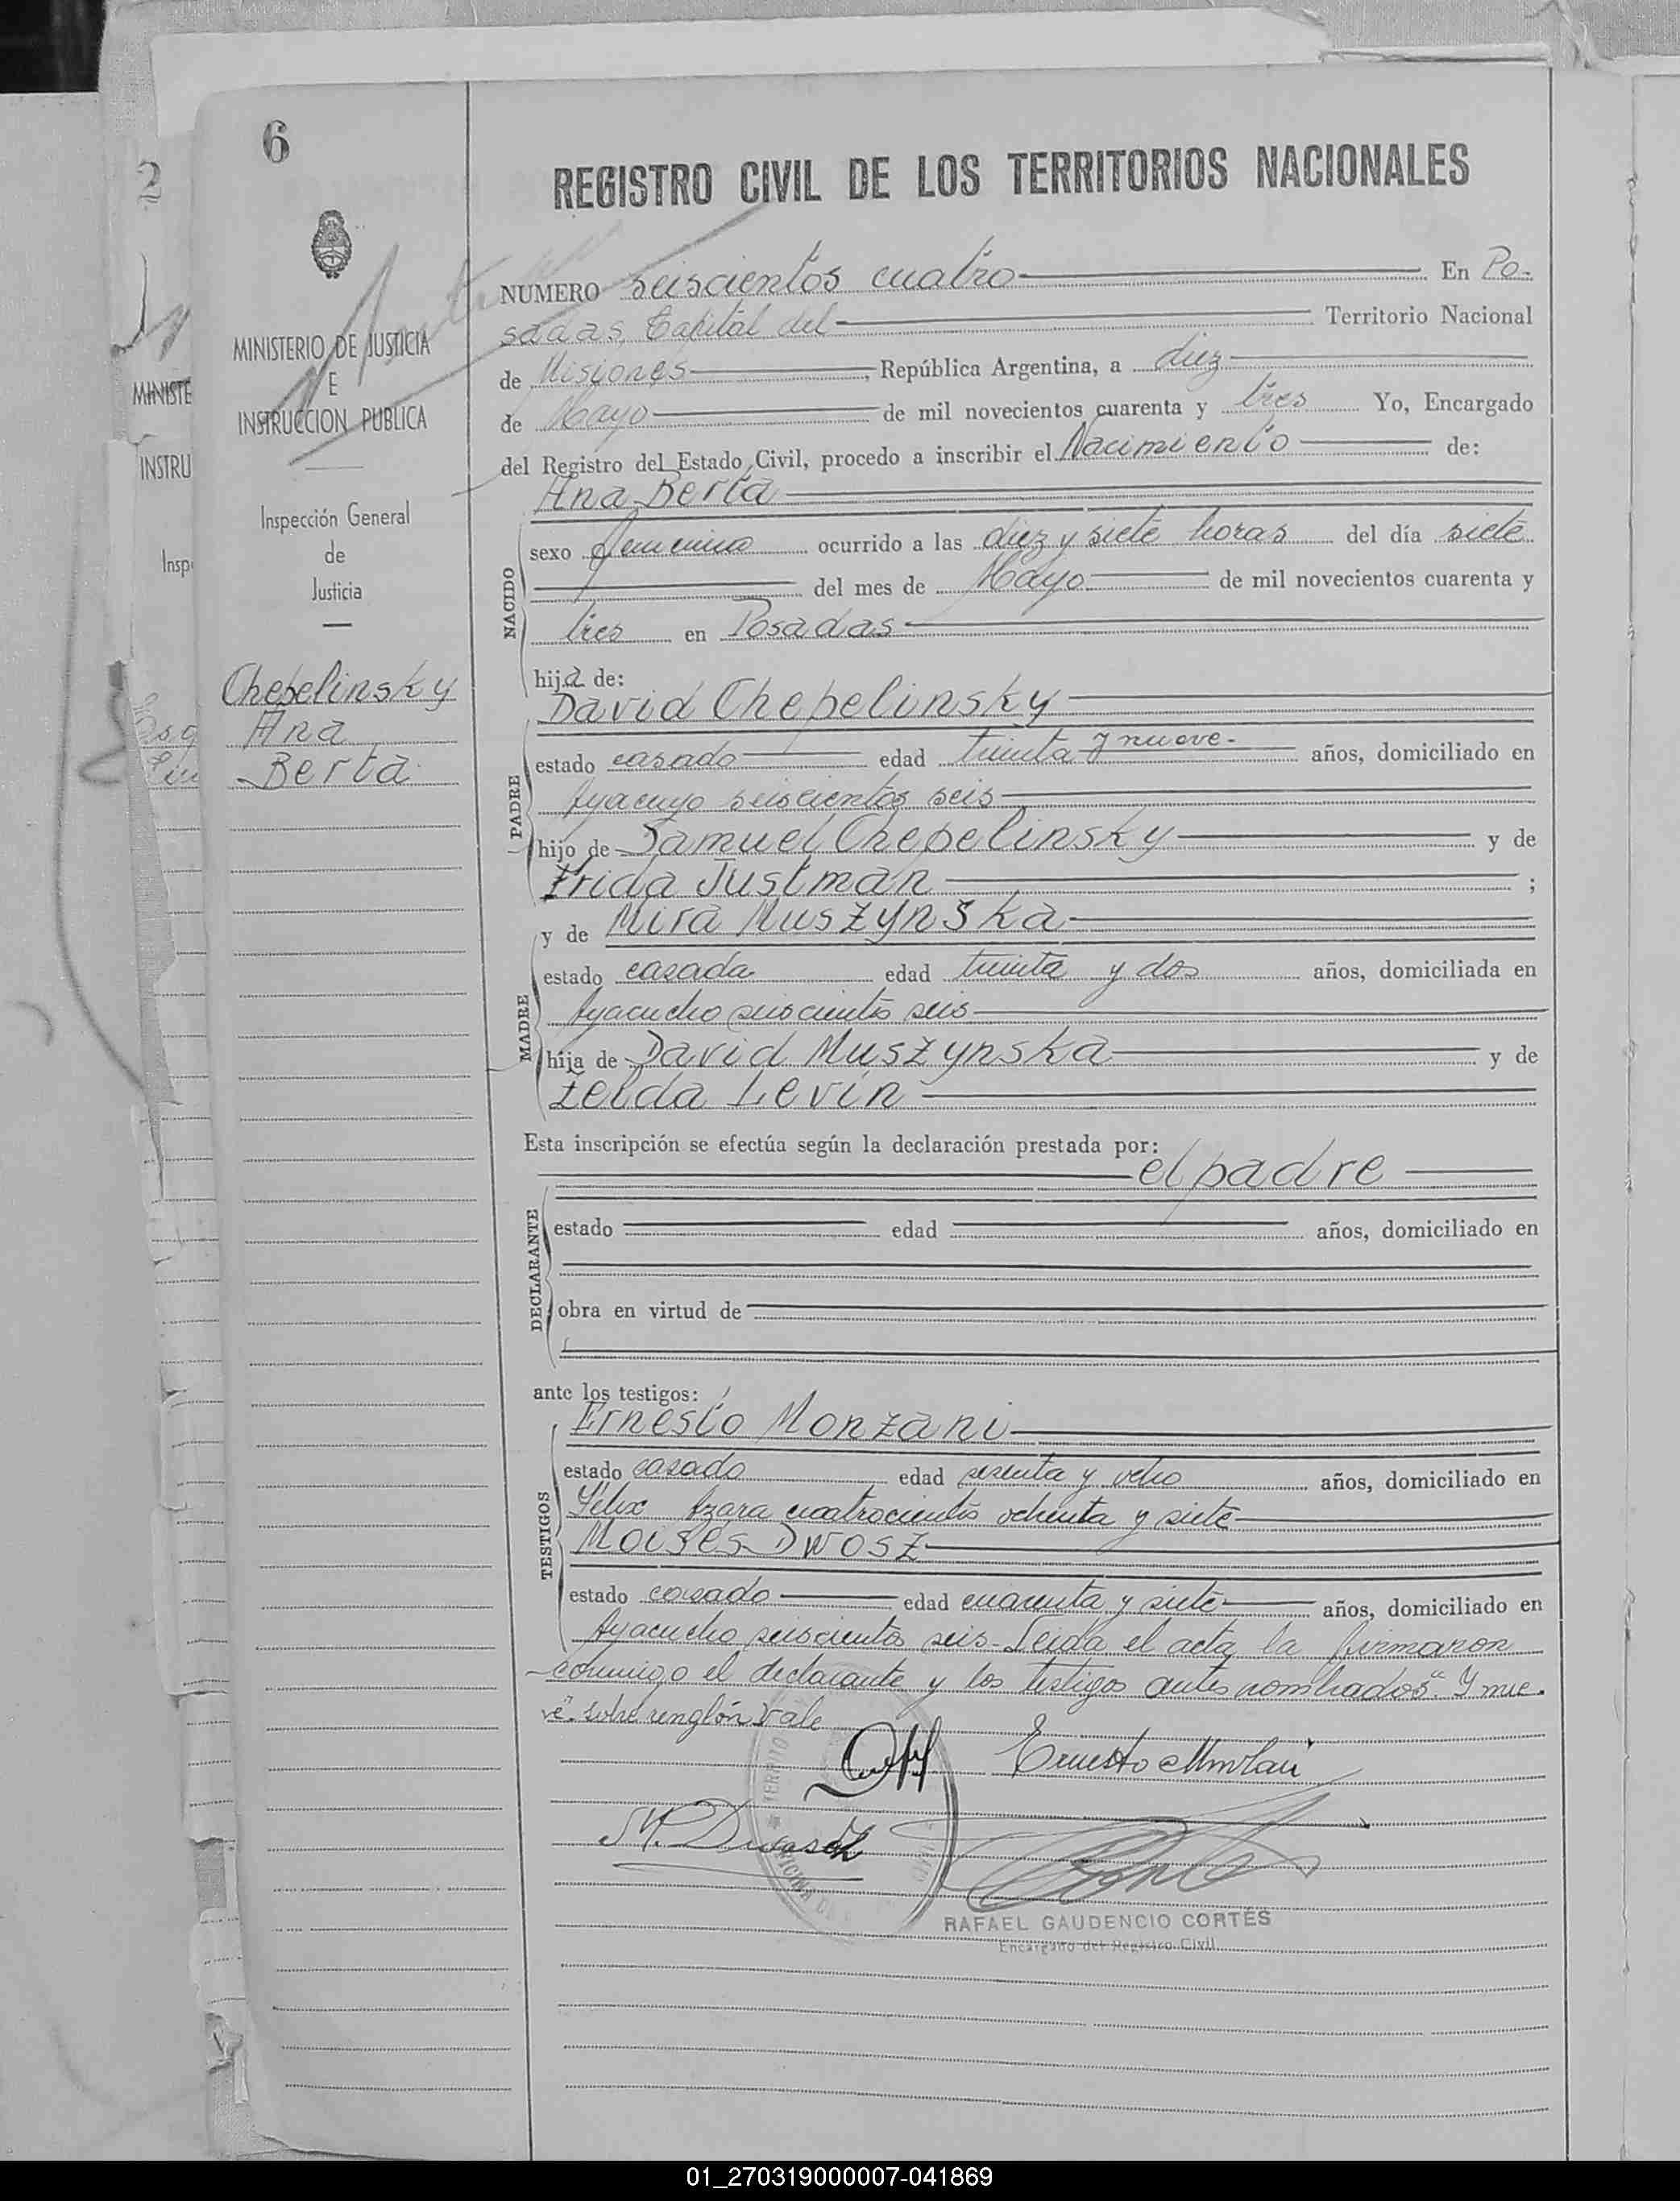 6
2
REGISTRO CIVIL DE LOS TERRITORIOS NACIONALES
NUMERO seiscientos cuatro En Po-
sadas, Capital del Territorio Nacional
de Misiones, República Argentina, a diez
de Mayo de mil novecientos cuarenta y tres Yo, Encargado
del Registro del Estado Civil, procedo a inscribir el Nacimiento de:
Ana Berta
sexo femenino ocurrido a las diez y siete horas del día siete
del mes de Mayo de mil novecientos cuarenta y
tres en Posadas
NACIDO
hija de:
David Chepelinsky
estado casado edad treinta y nueve- años, domiciliado en
Ayacuyo seiscientos seis
PADRE
hijo de Samuel Chepelinsky y de
Frida Justman ;
y de Mira Muszynska
estado casada edad treinta y dos años, domiciliada en
Ayacucho seiscientos seis
MADRE
hija de David Muszynska y de
Zelda Levin
Esta inscripción se efectúa según la declaración prestada por:
el padre
estado edad años, domiciliado en
DECLARANTE
obra en virtud de
ante los testigos:
Ernesto Monzani
estado casado edad sesenta y ocho años, domiciliado en
Félix Azara cuatrocientos ochenta y siete
TESTIGOS
Moisés Dwosz
estado casado edad cuarenta y siete años, domiciliado en
Ayacucho seiscientos seis- Leida el acta, la firmaron
conmigo el declarante y los testigos antes nombrados". Y nue-
ve". sobre renglón Vale
Ernesto Monzani
M. Dwosch
RAFAEL GAUDENCIO CORTÉS
Encargado del Registro Civil
MINISTERIO DE JUSTICIA
E
INSTRUCCION PUBLICA
Inspección General
de
Justicia
Chepelinsky
Ana
Berta
MINISTE
INSTRU
Insp
01_270319000007-041869